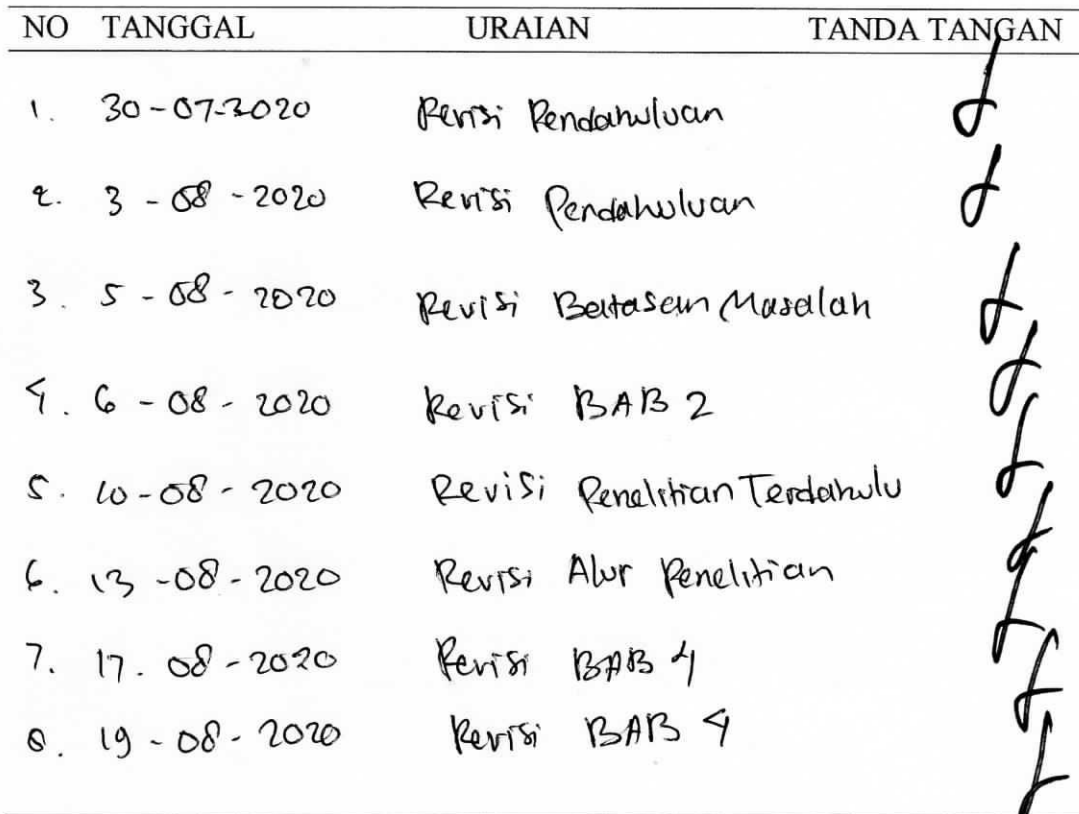 NO TANGGAL URAIAN TANDA TANGAN
1. 30-07-2020 Revisi Pendahuluan
2. 3-08-2020 Revisi Pendahuluan
3. 5-08-2020 Revisi Batasan Masalah
4. 6-08-2020 Revisi BAB 2
5. 10-08-2020 Revisi Penelitian Terdahulu
6. 13-08-2020 Revisi Alur Penelitian
7. 17.08-2020 Revisi BAB 4
8. 19-08-2020 Revisi BAB 4